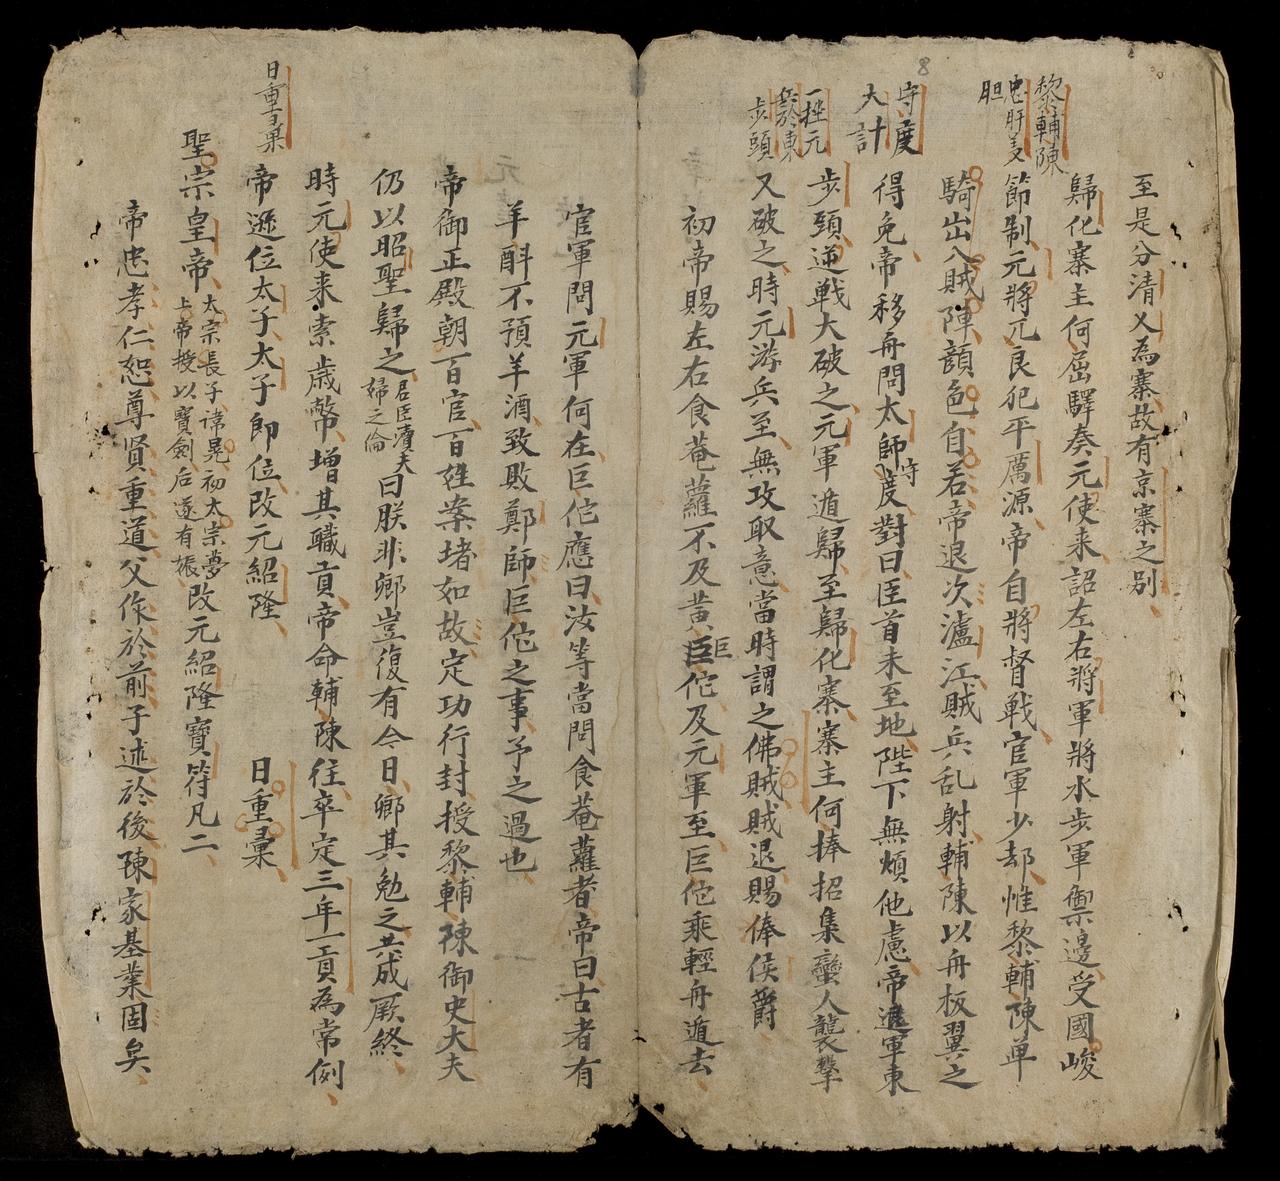 8
黎輔陳
忠肝義
胆
守度
大計
一挫元
兵於東
步頭
至是分清乂為寨故有京寨之别
歸化寨主何屈驛奏元使来詔左右將軍將水步軍禦邊受國峻
節制元將兀良犯平厲源帝自將督戰官軍少却惟黎輔陳单
騎出入賊陣顔色自若帝退次瀘江賊兵乱射輔陳以舟板翼之
得免帝移舟問太師守度對曰臣首未至地陛下無煩他慮帝進軍東
步頭逆戰大破之元軍遁歸至歸化寨寨主何捧招集蠻人襲擊
又破之時元游兵至無攻取意當時謂之佛賊賊退賜俸侯爵
初帝賜左右食菴蘿不及黄巨佗及元軍至巨佗乘輕舟遁去
官軍問元軍何在巨佗應曰汝等當問食菴蘿者帝曰古者有
羊斟不預羊酒致敗鄭師巨佗之事予之過也
帝御正殿朝百官百姓案堵如故定功行封授黎輔陳御史大夫
仍以昭聖歸之君臣瀆夫婦之倫曰朕非卿豈復有今日卿其勉之共成厥終
時元使来索歳幣增其職貢帝命輔陳往卒定三年一貢為常例
日重棐
帝遜位太子太子即位改元紹隆 日重彙
聖宗皇帝太宗長子諱晃初太宗夢上帝授以寶劍后遂有娠改元紹隆寶符凡二
帝忠孝仁恕尊賢重道父作於前子述於後陳家基業固矣